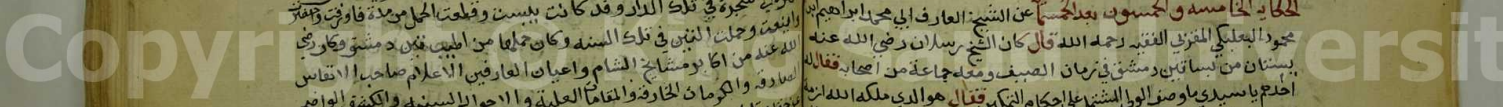 الحكاية الخامسة والخمسون بعد الخمسمائة عن الشيخ العارف ابي محمد ابراهيم بن
محمود البعلبكي المقري الفقيه رحمه الله قال كان الشيخ رسلان رضي الله عنه
ببستان من بساتين دمشق في زمان الصيف ومعه جماعة من اصحابه فقال له
احدهم يا سيدي ما وصف الولي المشتمل على احكام التمكين فقال هو الذي ملكه الله ازمة
شجرة في تلك الدار وقد كانت يبست وقطعت الحمل من مدة فاورقت
واينعت وحملت التين في تلك السنة وكان حملها من اطيب تين دمشق وكان رضي
الله عنه من اكابر مشايخ الشام واعيان العارفين الاعلام صاحب الانفاس
الصادقة والكرامات الخارقة والمقامات العلية والاحوال السنية
Copyri
versit